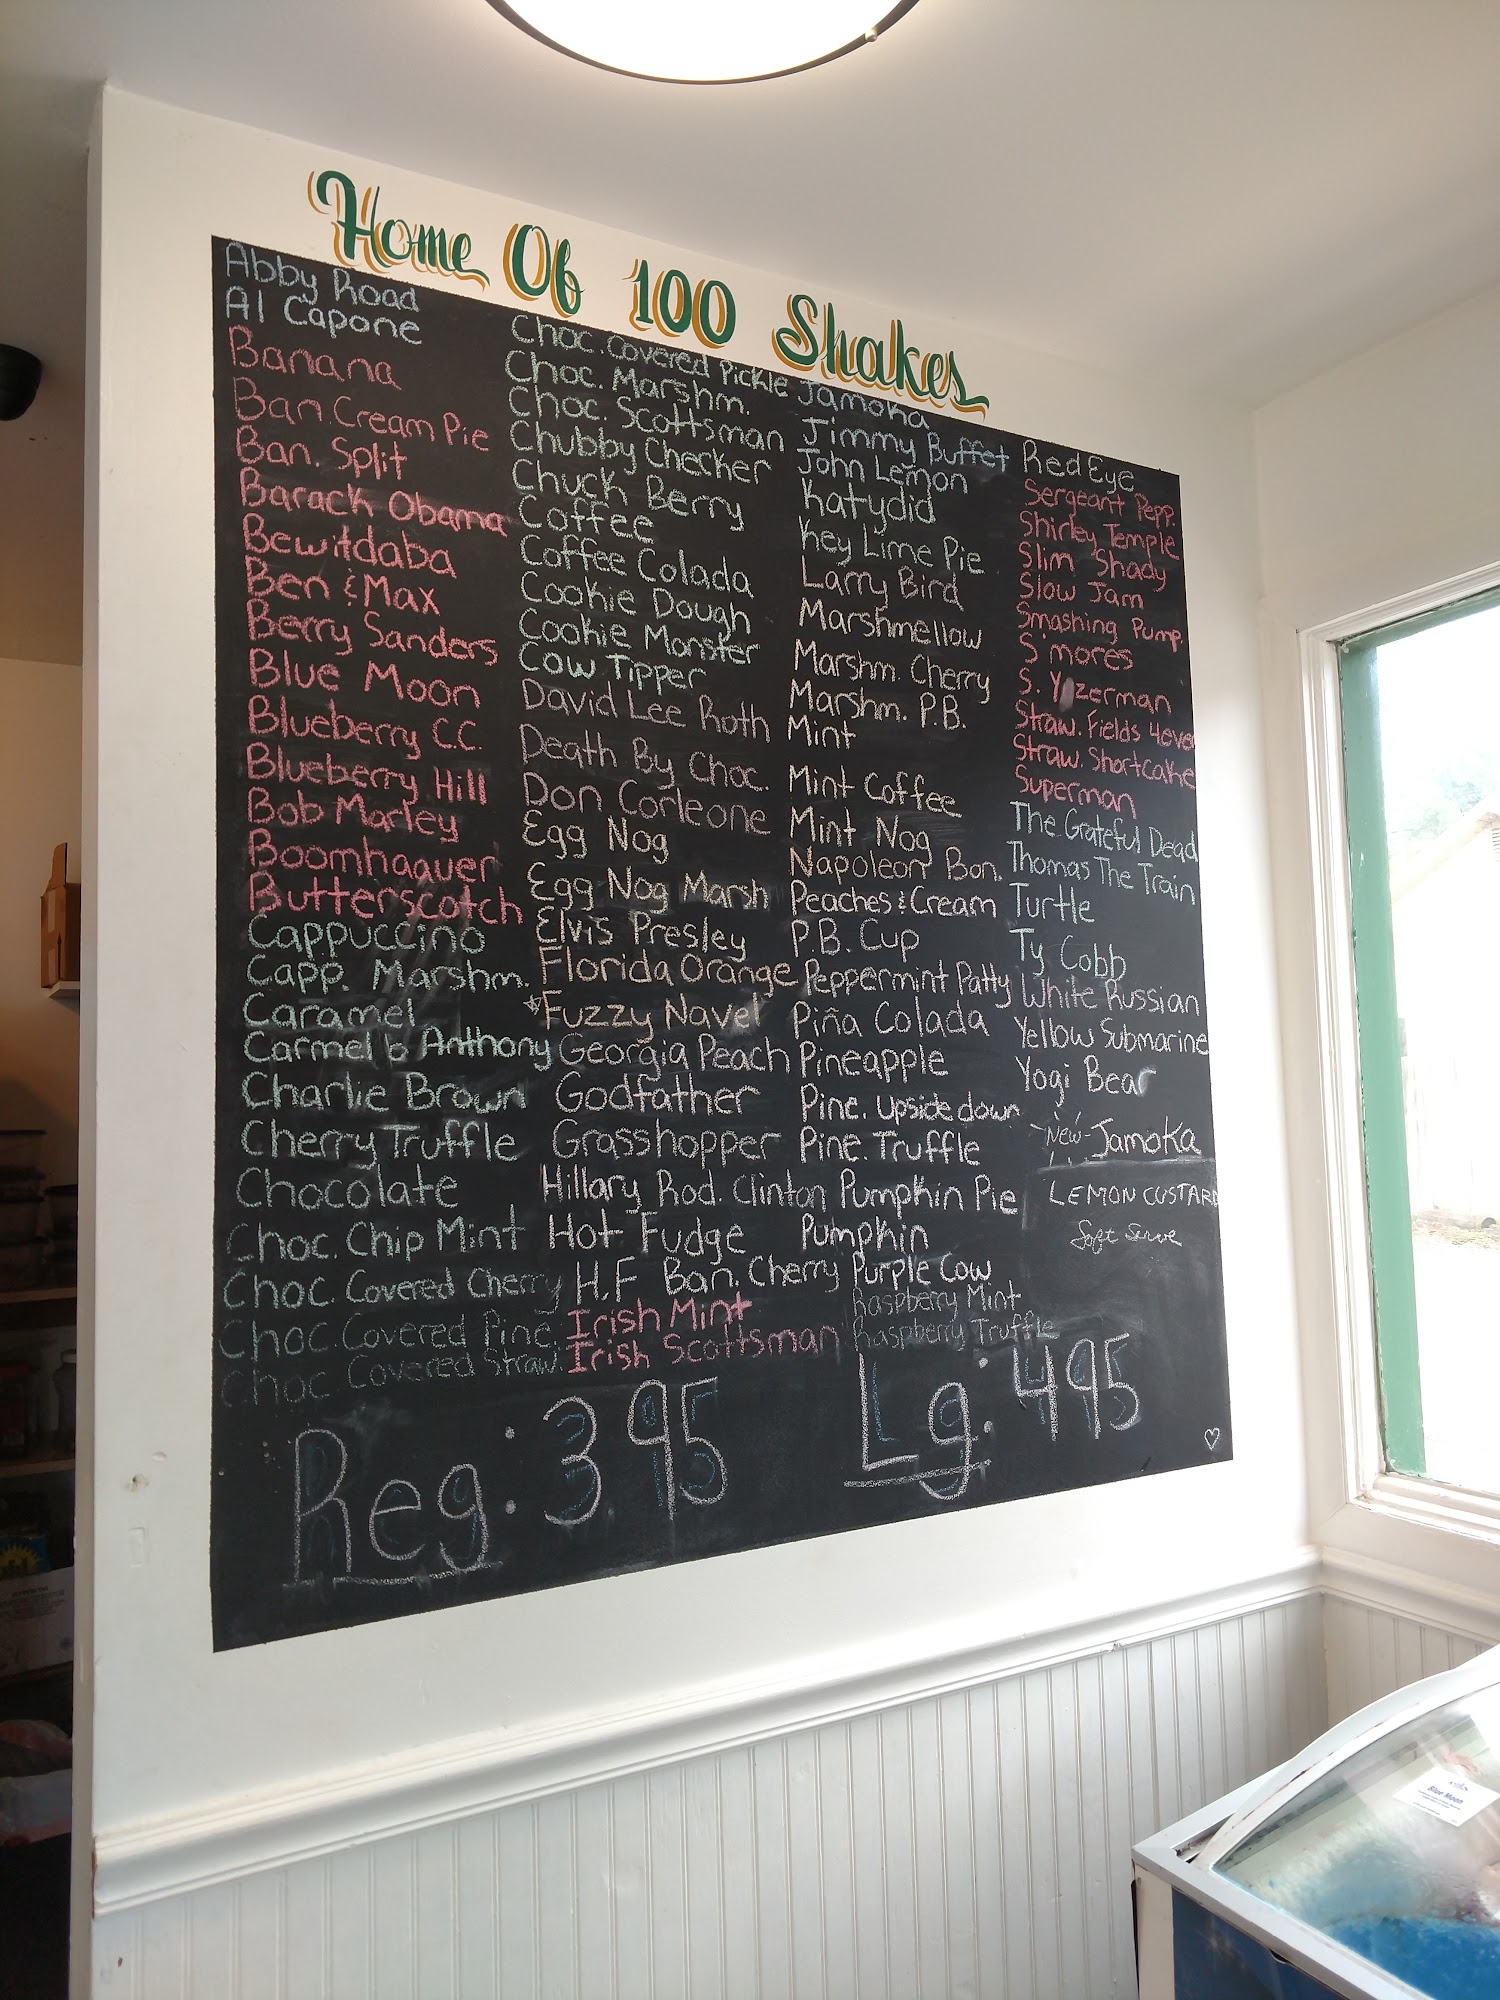 Home Of 100 Shakes
Abby Road
Al Capone
Banana
Ban. Cream Pie
Ban. Split
Barack Obama
Bewitdaba
Ben & Max
Berry Sanders
Blue Moon
Blueberry C.C.
Blueberry Hill
Bob Marley
Boomhauer
Butterscotch
Cappuccino
Capp. Marshm.
Caramel
Carmello Anthony
Charlie Brown
Cherry Truffle
Chocolate
Choc. Chip Mint
Choc. Covered Cherry
Choc. Covered Pine.
Choc Covered Straw.
Choc. Covered Pickle
Choc. Marshm.
Choc. Scottsman
Chubby Checker
Chuck Berry
Coffee
Coffee Colada
Cookie Dough
Cookie Monster
Cow Tipper
David Lee Roth
Death By Choc.
Don Corleone
Egg Nog
Egg Nog Marsh
Elvis Presley
Florida Orange
Fuzzy Navel
Georgia Peach
Godfather
Grasshopper
Hillary Rod. Clinton
Hot Fudge
H.F Ban. Cherry
Irish Mint
Irish Scottsman
Jamoka
Jimmy Buffet
John Lemon
Katydid
Key Lime Pie
Larry Bird
Marshmellow
Marshm. Cherry
Marshm. P.B.
Mint
Mint Coffee
Mint Nog
Napoleon Bon.
Peaches & Cream
P.B. Cup
Peppermint Patty
Piña Colada
Pineapple
Pine. Upside down
Pine. Truffle
Pumpkin Pie
Pumpkin
Purple Cow
Raspberry Mint
Raspberry Truffle
Red Eye
Sergeant Pepp.
Shirley Temple
Slim Shady
Slow Jam
Smashing Pump.
S'mores
S. Yzerman
Straw. Fields 4ever
Straw. Shortcake
Superman
The Grateful Dead
Thomas The Train
Turtle
Ty Cobb
White Russian
Yellow Submarine
Yogi Bear
New - Jamoka
LEMON CUSTARD
Soft Serve
Reg: 395
Lg: 495
Blue Moon